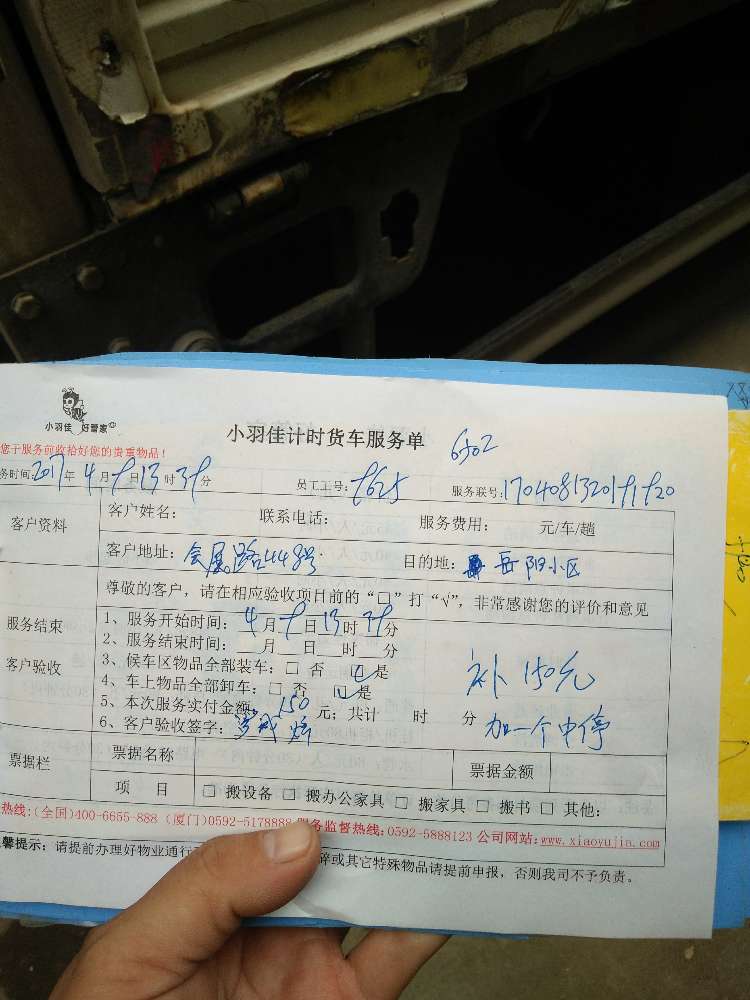 小羽佳 好管家
小羽佳计时货车服务单
您于服务前收拾好您的贵重物品!
务时间: 2017年 4月 8日 13时 38分 员工工号: 8625 服务联号:
客户资料 客户姓名: 联系电话: 服务费用: 元/车/趟
客户地址: 会展路448号 目的地: 岳阳小区
尊敬的客户,请在相应验收项目前的“□”打“√”,非常感谢您的评价和意见
服务结束
客户验收
1、服务开始时间: 4月8日13时38分
2、服务结束时间: __月__日__时__分
3、候车区物品全部装车: □ 否 ☑是
4、车上物品全部卸车: □ 否 ☑是
5、本次服务实付金额: 150 元; 共计 时 分
6、客户验收签字:
补150元
加一个中停
票据栏 票据名称 票据金额
项 目 □ 搬设备 □ 搬办公家具 □ 搬家具 □ 搬书 □ 其他:
热线:(全国)400-6655-888 (厦门)0592-5178888 服务监督热线:0592-5888123 公司网站:www.xiaoyujia.com
馨提示: 请提前办理好物业通行 碎或其它特殊物品请提前申报,否则我司不予负责。